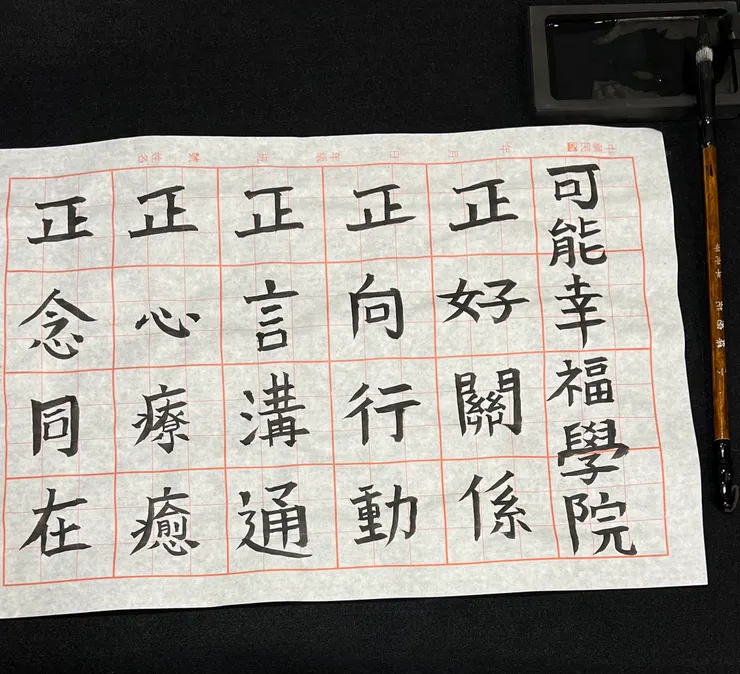 可能幸福學院
正好關係
正向行動
正言溝通
正心療癒
正念同在